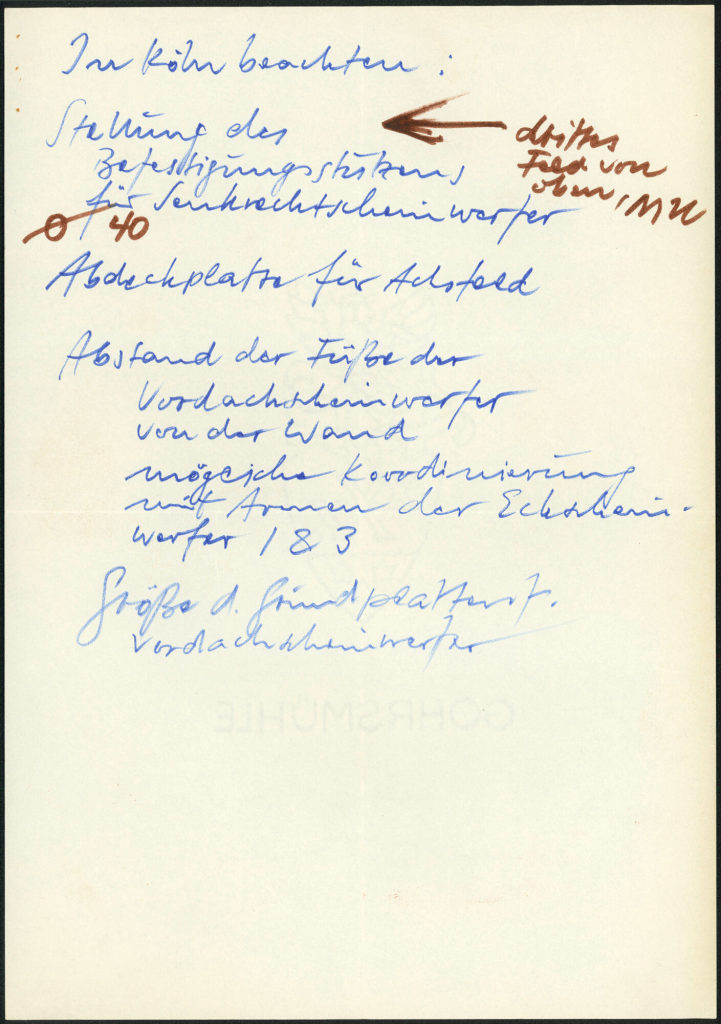 In Köln beachten :
Stellung des
Befestigungsstutzens
für Senkrechtscheinwerfer
Ø 40
drittes
Feld von
oben,
Abdeckplatte für Achsfeld
Abstand der Füße der
Vordachscheinwerfer
von der Wand
mögliche Koordinierung
mit Armen der Eckschein-
werfer 1 & 3
Größe d. Grundplatten f.
Vordachscheinwerfer
GOHRSMÜHLE